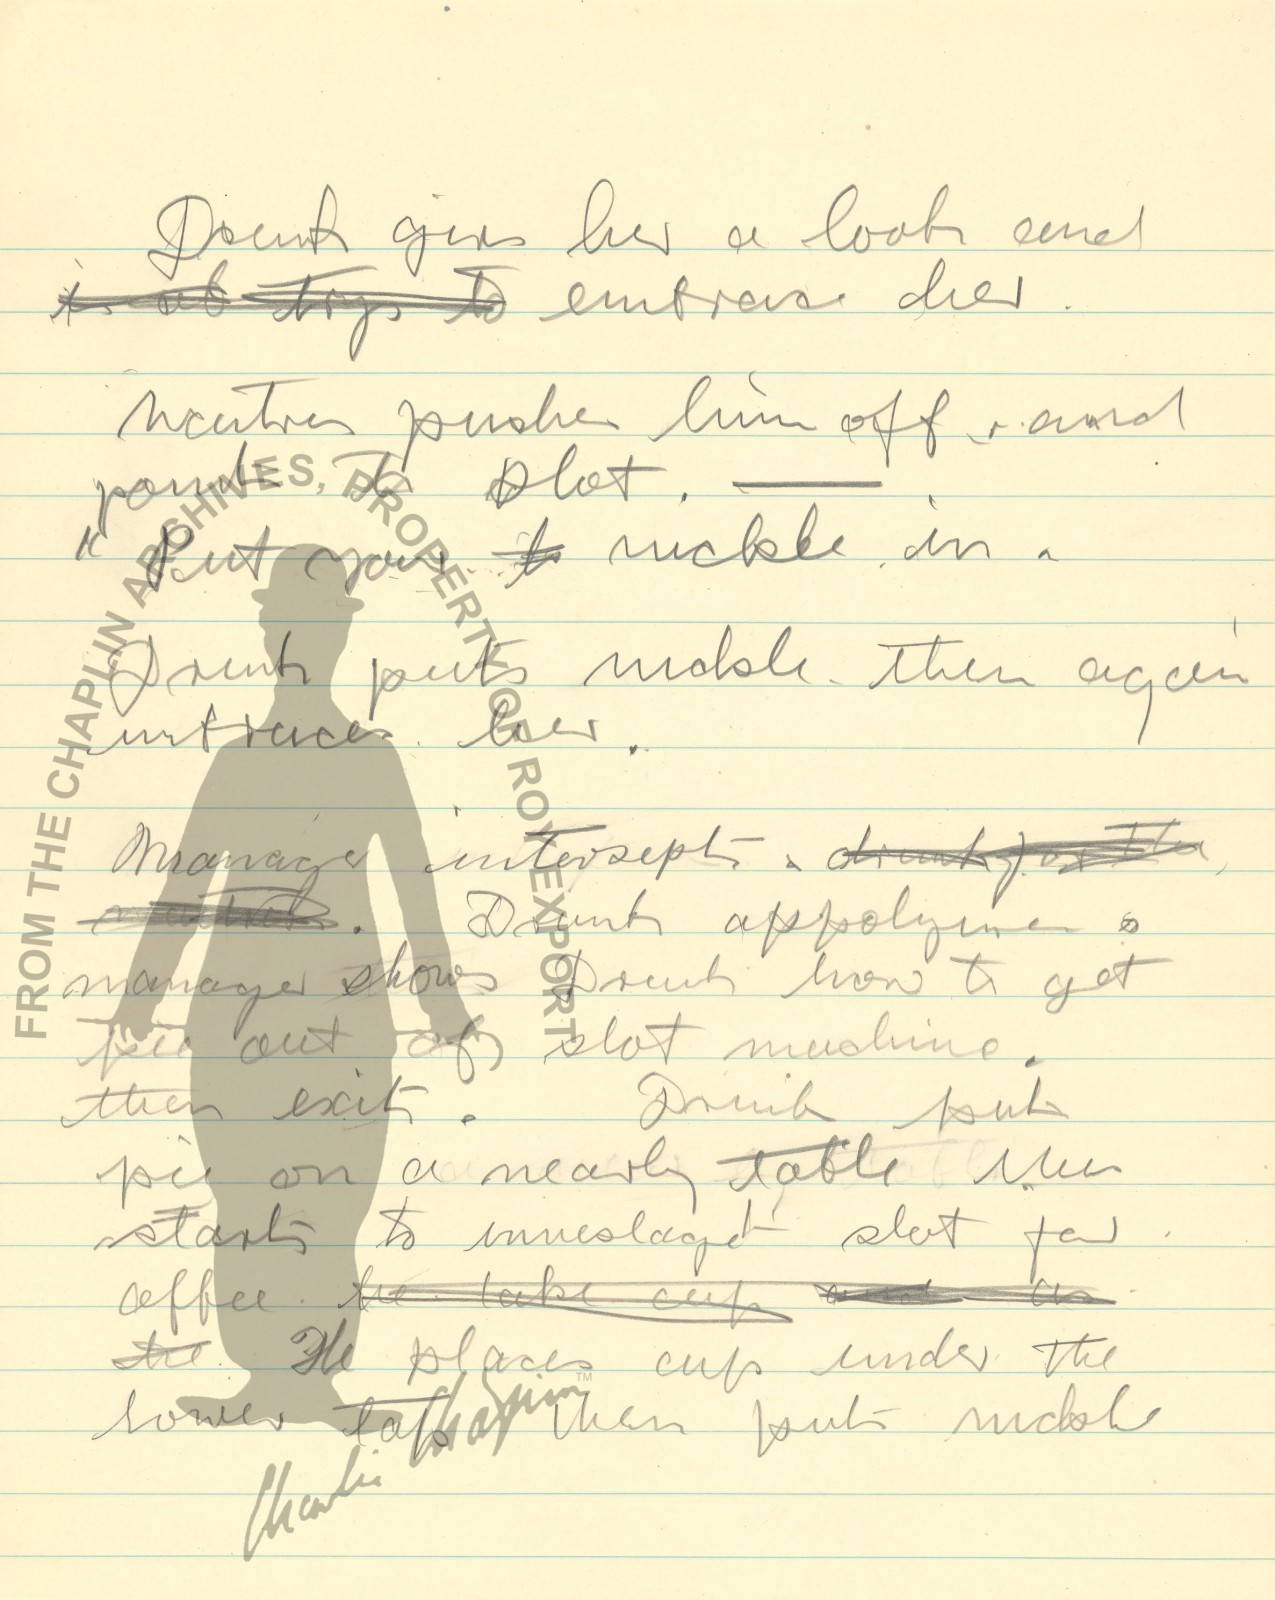 Drunk gives her a look and
~~tries to~~ embrace her.
Matron pushes him off, and
points to slot. —
"Put your ~~to~~ nickle in.
Drunk puts nickle then again
imbraces her.
Manager intersepts. ~~drunk for the~~
~~matron~~. Drunk appolgines
manager shows Drunk how to get
pie out of slot mashine.
then exits. Drunk puts
pie on a nearly table then
starts to invesdaget slot for
coffee. ~~he take cup and as~~
~~the~~ He places cup under the
lower tap then puts nickle
FROM THE CHAPLIN ARCHIVES, PROPERTY OF ROY EXPORT
Charlie Chaplin™